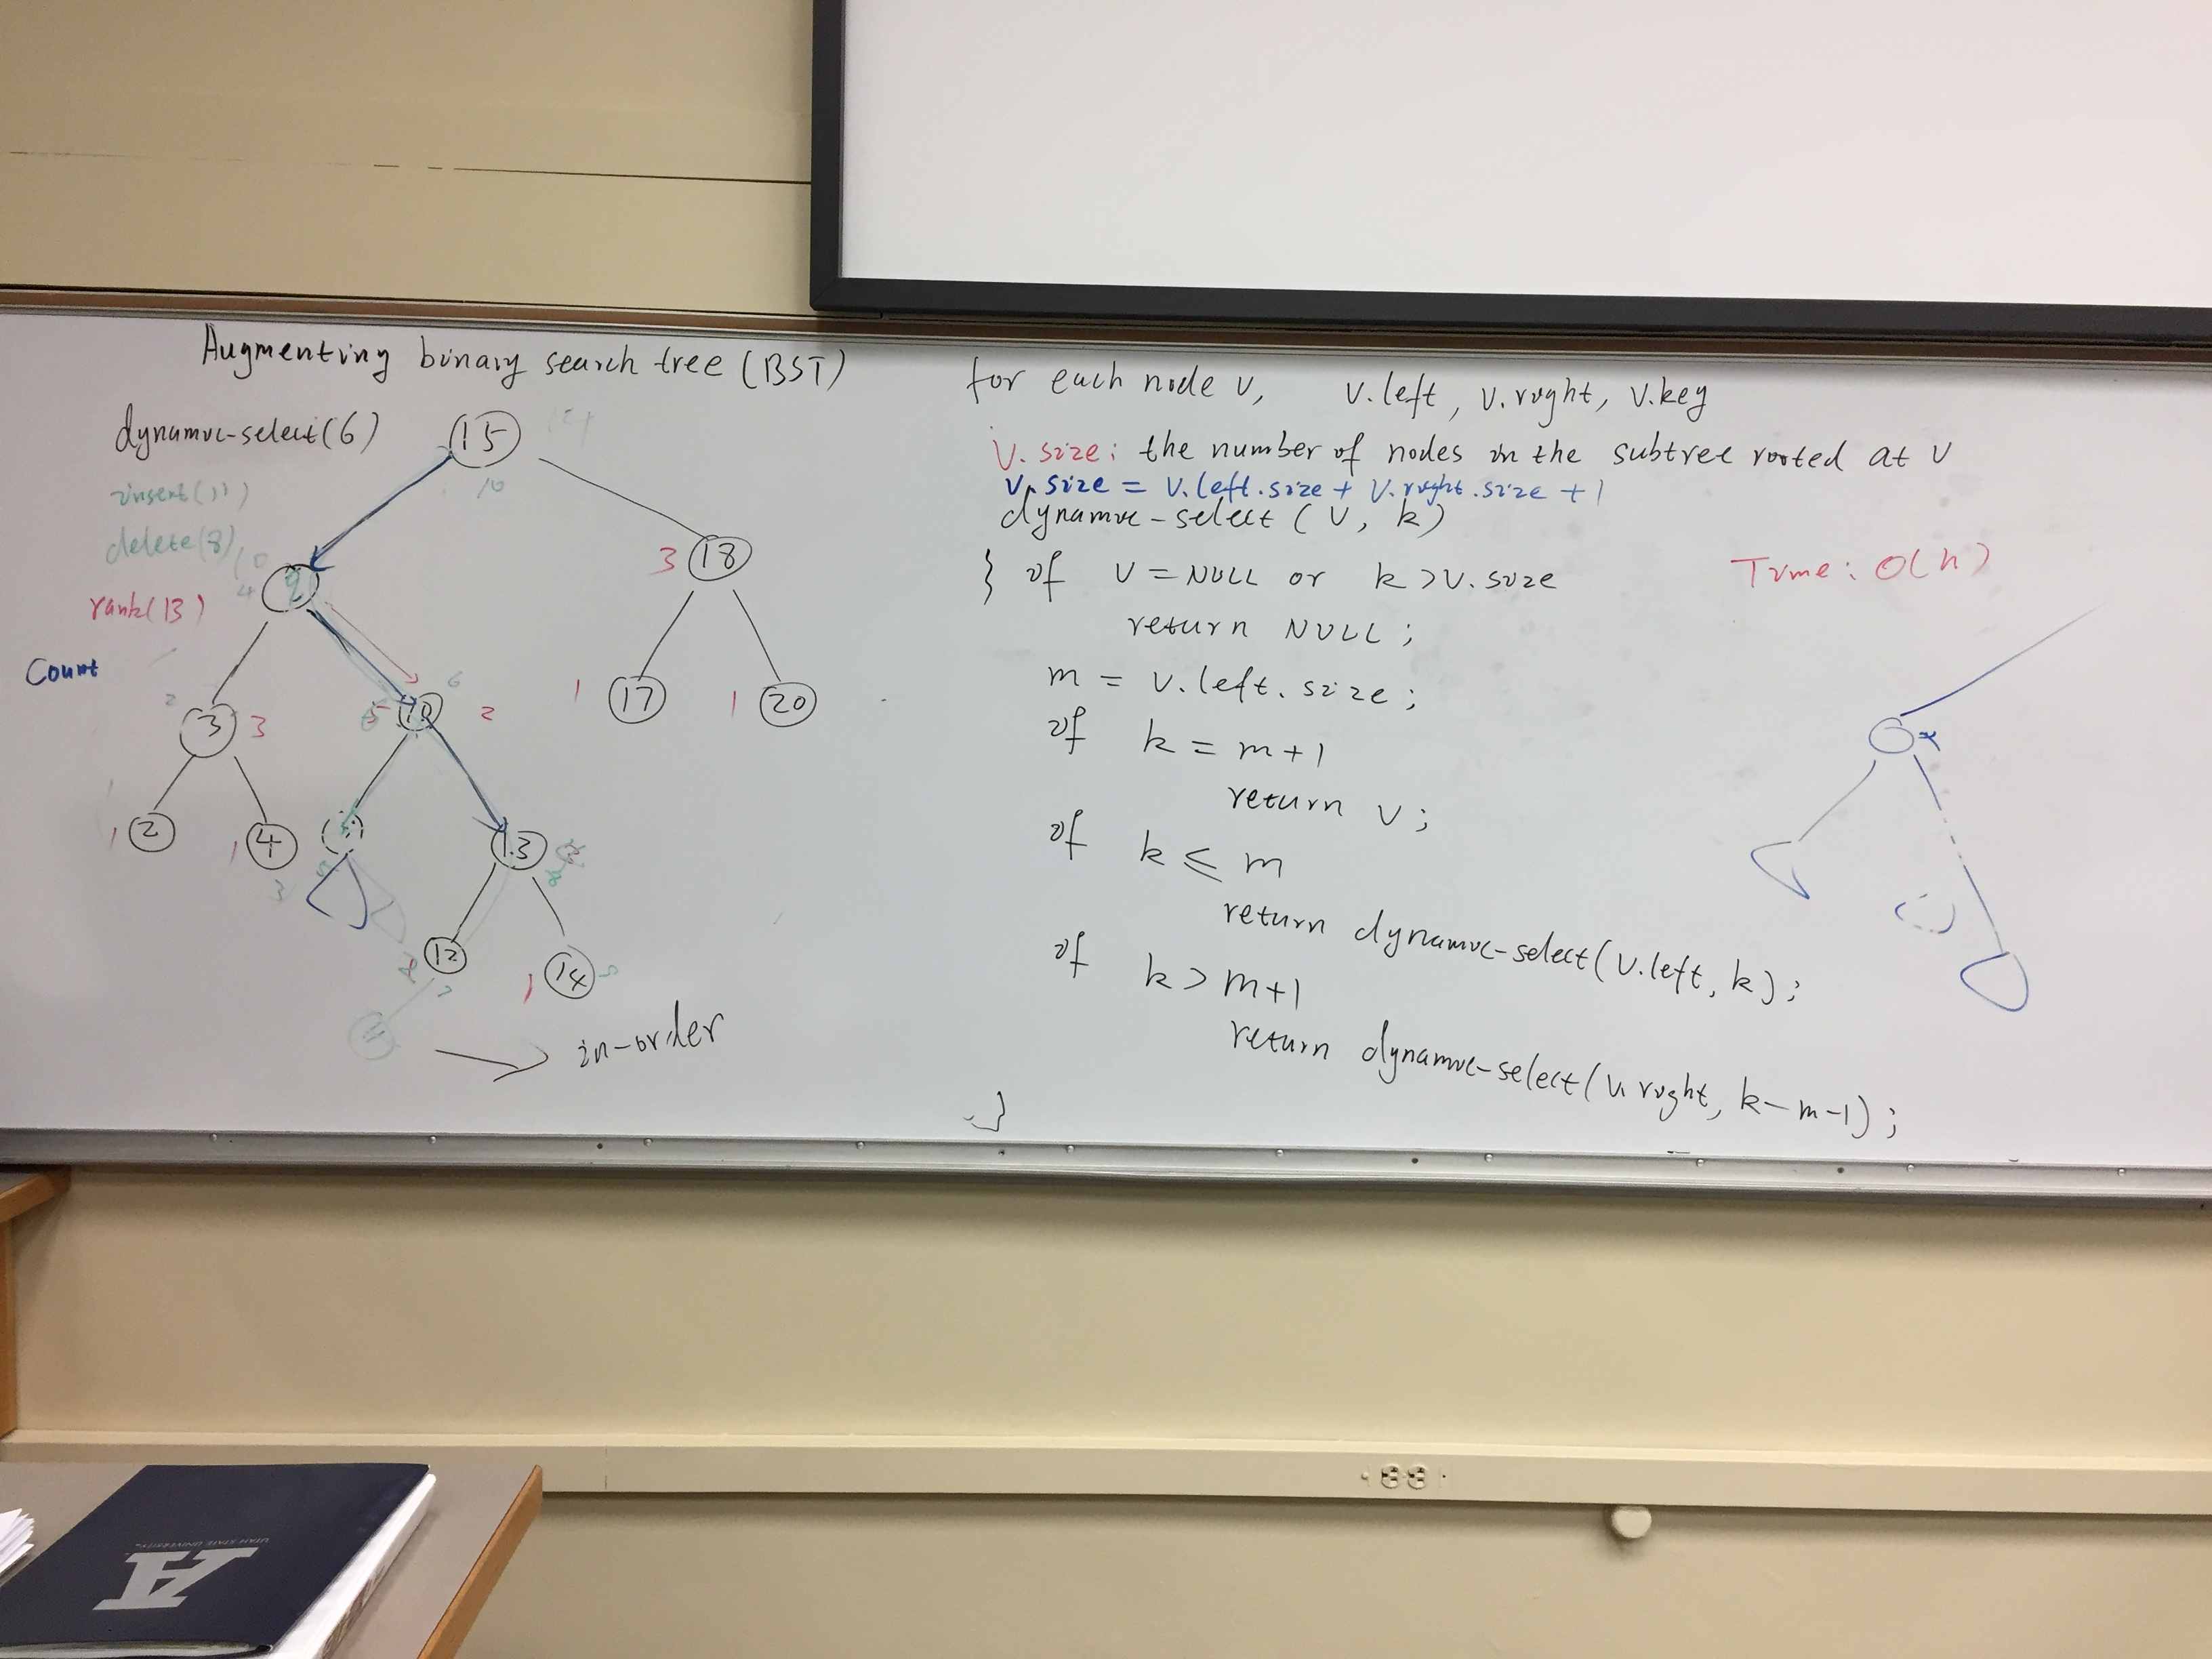 Augmenting binary search tree (BST)
dynamic-select(6)
insert(11)
delete(8)
rank(13)
Count
15
10
18
3
17
1
20
1
3
3
10
6
2
2
1
4
1
13
12
14
1
in-order
for each node v, v.left, v.right, v.key
v.size: the number of nodes in the subtree rooted at v
v.size = v.left.size + v.right.size + 1
dynamic-select (v, k)
} if v = NULL or k > v.size
return NULL;
m = v.left.size;
if k = m+1
return v;
if k ≤ m
return dynamic-select(v.left, k);
if k > m+1
return dynamic-select(v.right, k-m-1);
}
Time: O(h)
UTAH STATE UNIVERSITY
A